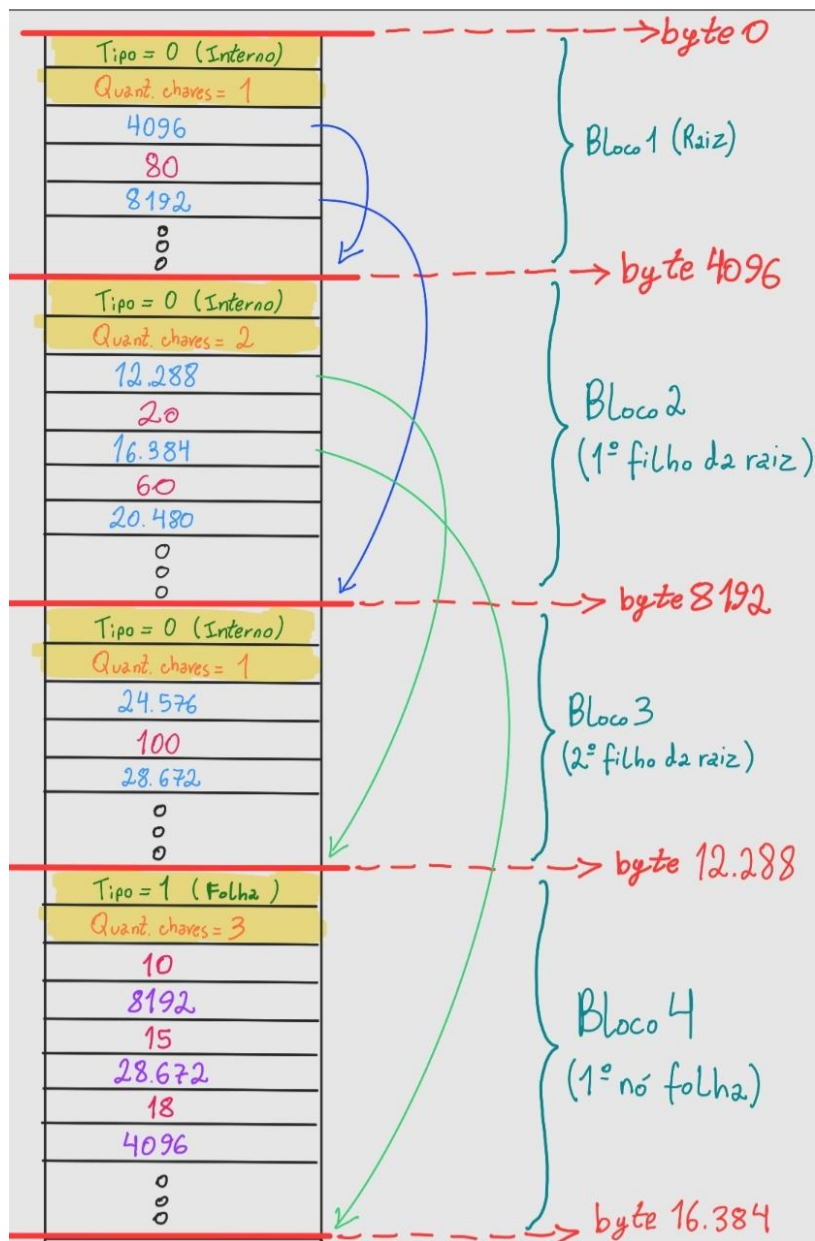 byte 0
Tipo = 0 (Interno)
Quant. chaves = 1
4096
80
8192
Bloco 1 (Raiz)
byte 4096
Tipo = 0 (Interno)
Quant. chaves = 2
12.288
20
16.384
60
20.480
Bloco 2
(1º filho da raiz)
byte 8192
Tipo = 0 (Interno)
Quant. chaves = 1
24.576
100
28.672
Bloco 3
(2º filho da raiz)
byte 12.288
Tipo = 1 (Folha)
Quant. chaves = 3
10
8192
15
28.672
18
4096
Bloco 4
(1º nó folha)
byte 16.384